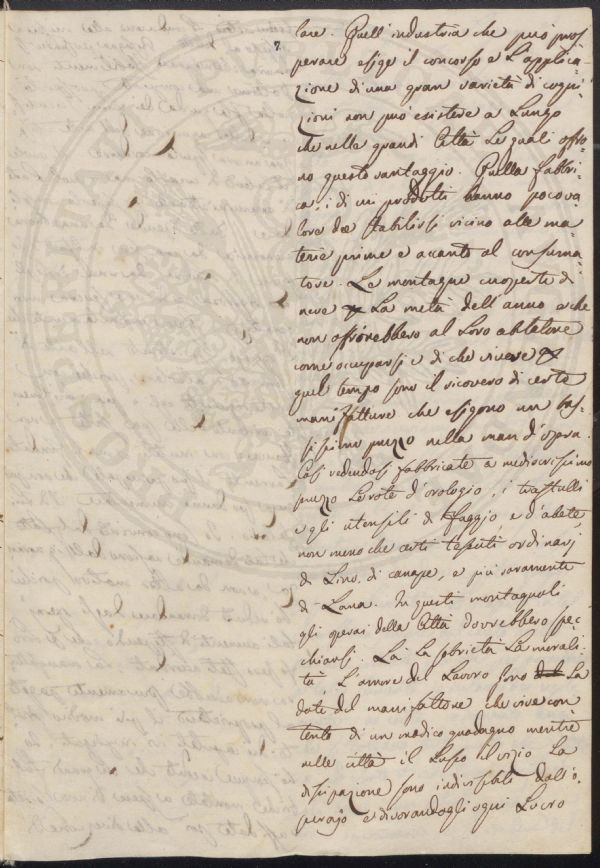 7.
lare. Quell'industria che può pros
perare esige il concorso e L'applica
zione di una gran varietà di cogni
zioni non può esistere a Lungo
che nelle grandi Città Le quali offro
no questo vantaggio. Quella fabbri
ca, i di cui prodotti hanno poco va
lore dee stabilirsi vicino alle ma
terie prime e accanto al consuma
tore. Le montagne coperte di
neve La metà dell'anno e che
non offrirebbero al Loro abitatore
come occuparsi e di che vivere
quel tempo sono il ricovero di certe
manifatture che esigono un bas
sissimo prezzo nella man d'opra.
Così vedendosi fabbricate a mediocrissimo
prezzo Le rote d'orologio, i trastulli
e gli utensili di faggio, e d'abete,
non meno che certi tessuti ordinarj
di Lino, di canape, e più raramente
di Lana. In questi montagnoli
gli operai della Città dovrebbero spec
chiarsi. Là La sobrietà La morali
tà, L'amore del Lavoro sono La
dote del manifattore che vive con
tento di un modico guadagno mentre
nelle città il Lusso il vizio La
dissipazione sono indivisibili dall'o
perajo e divorandogli ogni Lucro